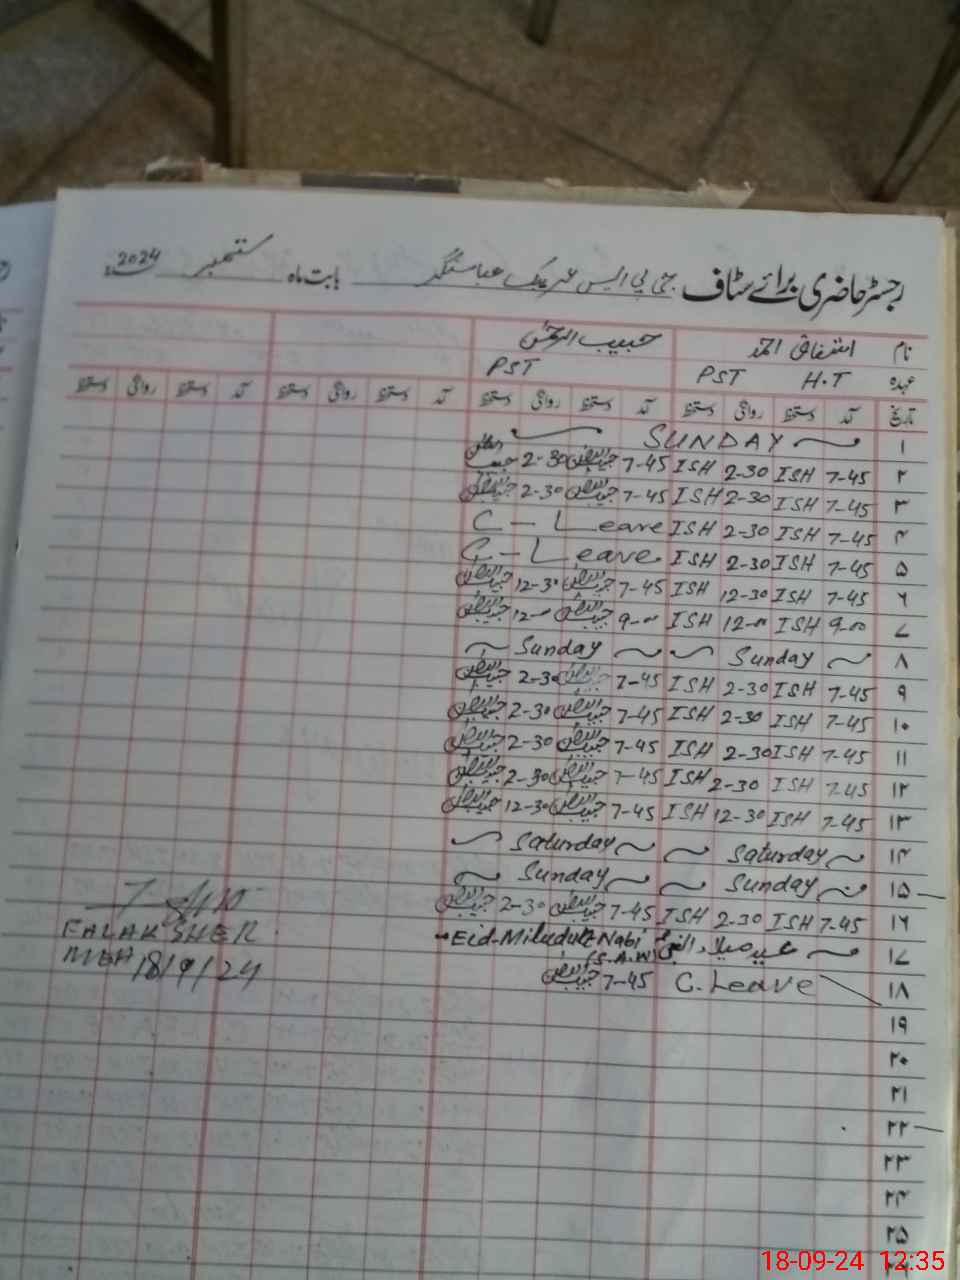 رجسٹر حاضری برائے سٹاف جی پی ایس عباسنگر بابت ماہ ستمبر سنہ 2024
نام اشفاق احمد حبیب الرحمٰن
عہدہ H.T PST PST
تاریخ آمد دستخط روانگی دستخط آمد دستخط روانگی دستخط آمد دستخط روانگی دستخط آمد دستخط روانگی دستخط
۱ SUNDAY
۲ 7-45 ISH 2-30 ISH 7-45 حبیب الرحمٰن 2-30 حبیب الرحمٰن
۳ 7-45 ISH 2-30 ISH 7-45 حبیب الرحمٰن 2-30 حبیب الرحمٰن
۴ 7-45 ISH 2-30 ISH C-Leave
۵ 7-45 ISH 2-30 ISH C-Leave
۶ 7-45 ISH 12-30 ISH 7-45 حبیب الرحمٰن 12-30 حبیب الرحمٰن
۷ 9-00 ISH 12-00 ISH 9-00 حبیب الرحمٰن 12-00 حبیب الرحمٰن
۸ Sunday Sunday
۹ 7-45 ISH 2-30 ISH 7-45 حبیب الرحمٰن 2-30 حبیب الرحمٰن
۱۰ 7-45 ISH 2-30 ISH 7-45 حبیب الرحمٰن 2-30 حبیب الرحمٰن
۱۱ 7-45 ISH 2-30 ISH 7-45 حبیب الرحمٰن 2-30 حبیب الرحمٰن
۱۲ 7-45 ISH 2-30 ISH 7-45 حبیب الرحمٰن 2-30 حبیب الرحمٰن
۱۳ 7-45 ISH 12-30 ISH 7-45 حبیب الرحمٰن 12-30 حبیب الرحمٰن
۱۴ Saturday Saturday
۱۵ Sunday Sunday
۱۶ 7-45 ISH 2-30 ISH 7-45 حبیب الرحمٰن 2-30 حبیب الرحمٰن
۱۷ عید میلاد النبیؐ Eid-Miladul Nabi (S.A.W)
۱۸ C.Leave 7-45 حبیب الرحمٰن
FALAK SHER
MEA 18/9/24
۱۹
۲۰
۲۱
۲۲
۲۳
۲۴
۲۵
18-09-24 12:35